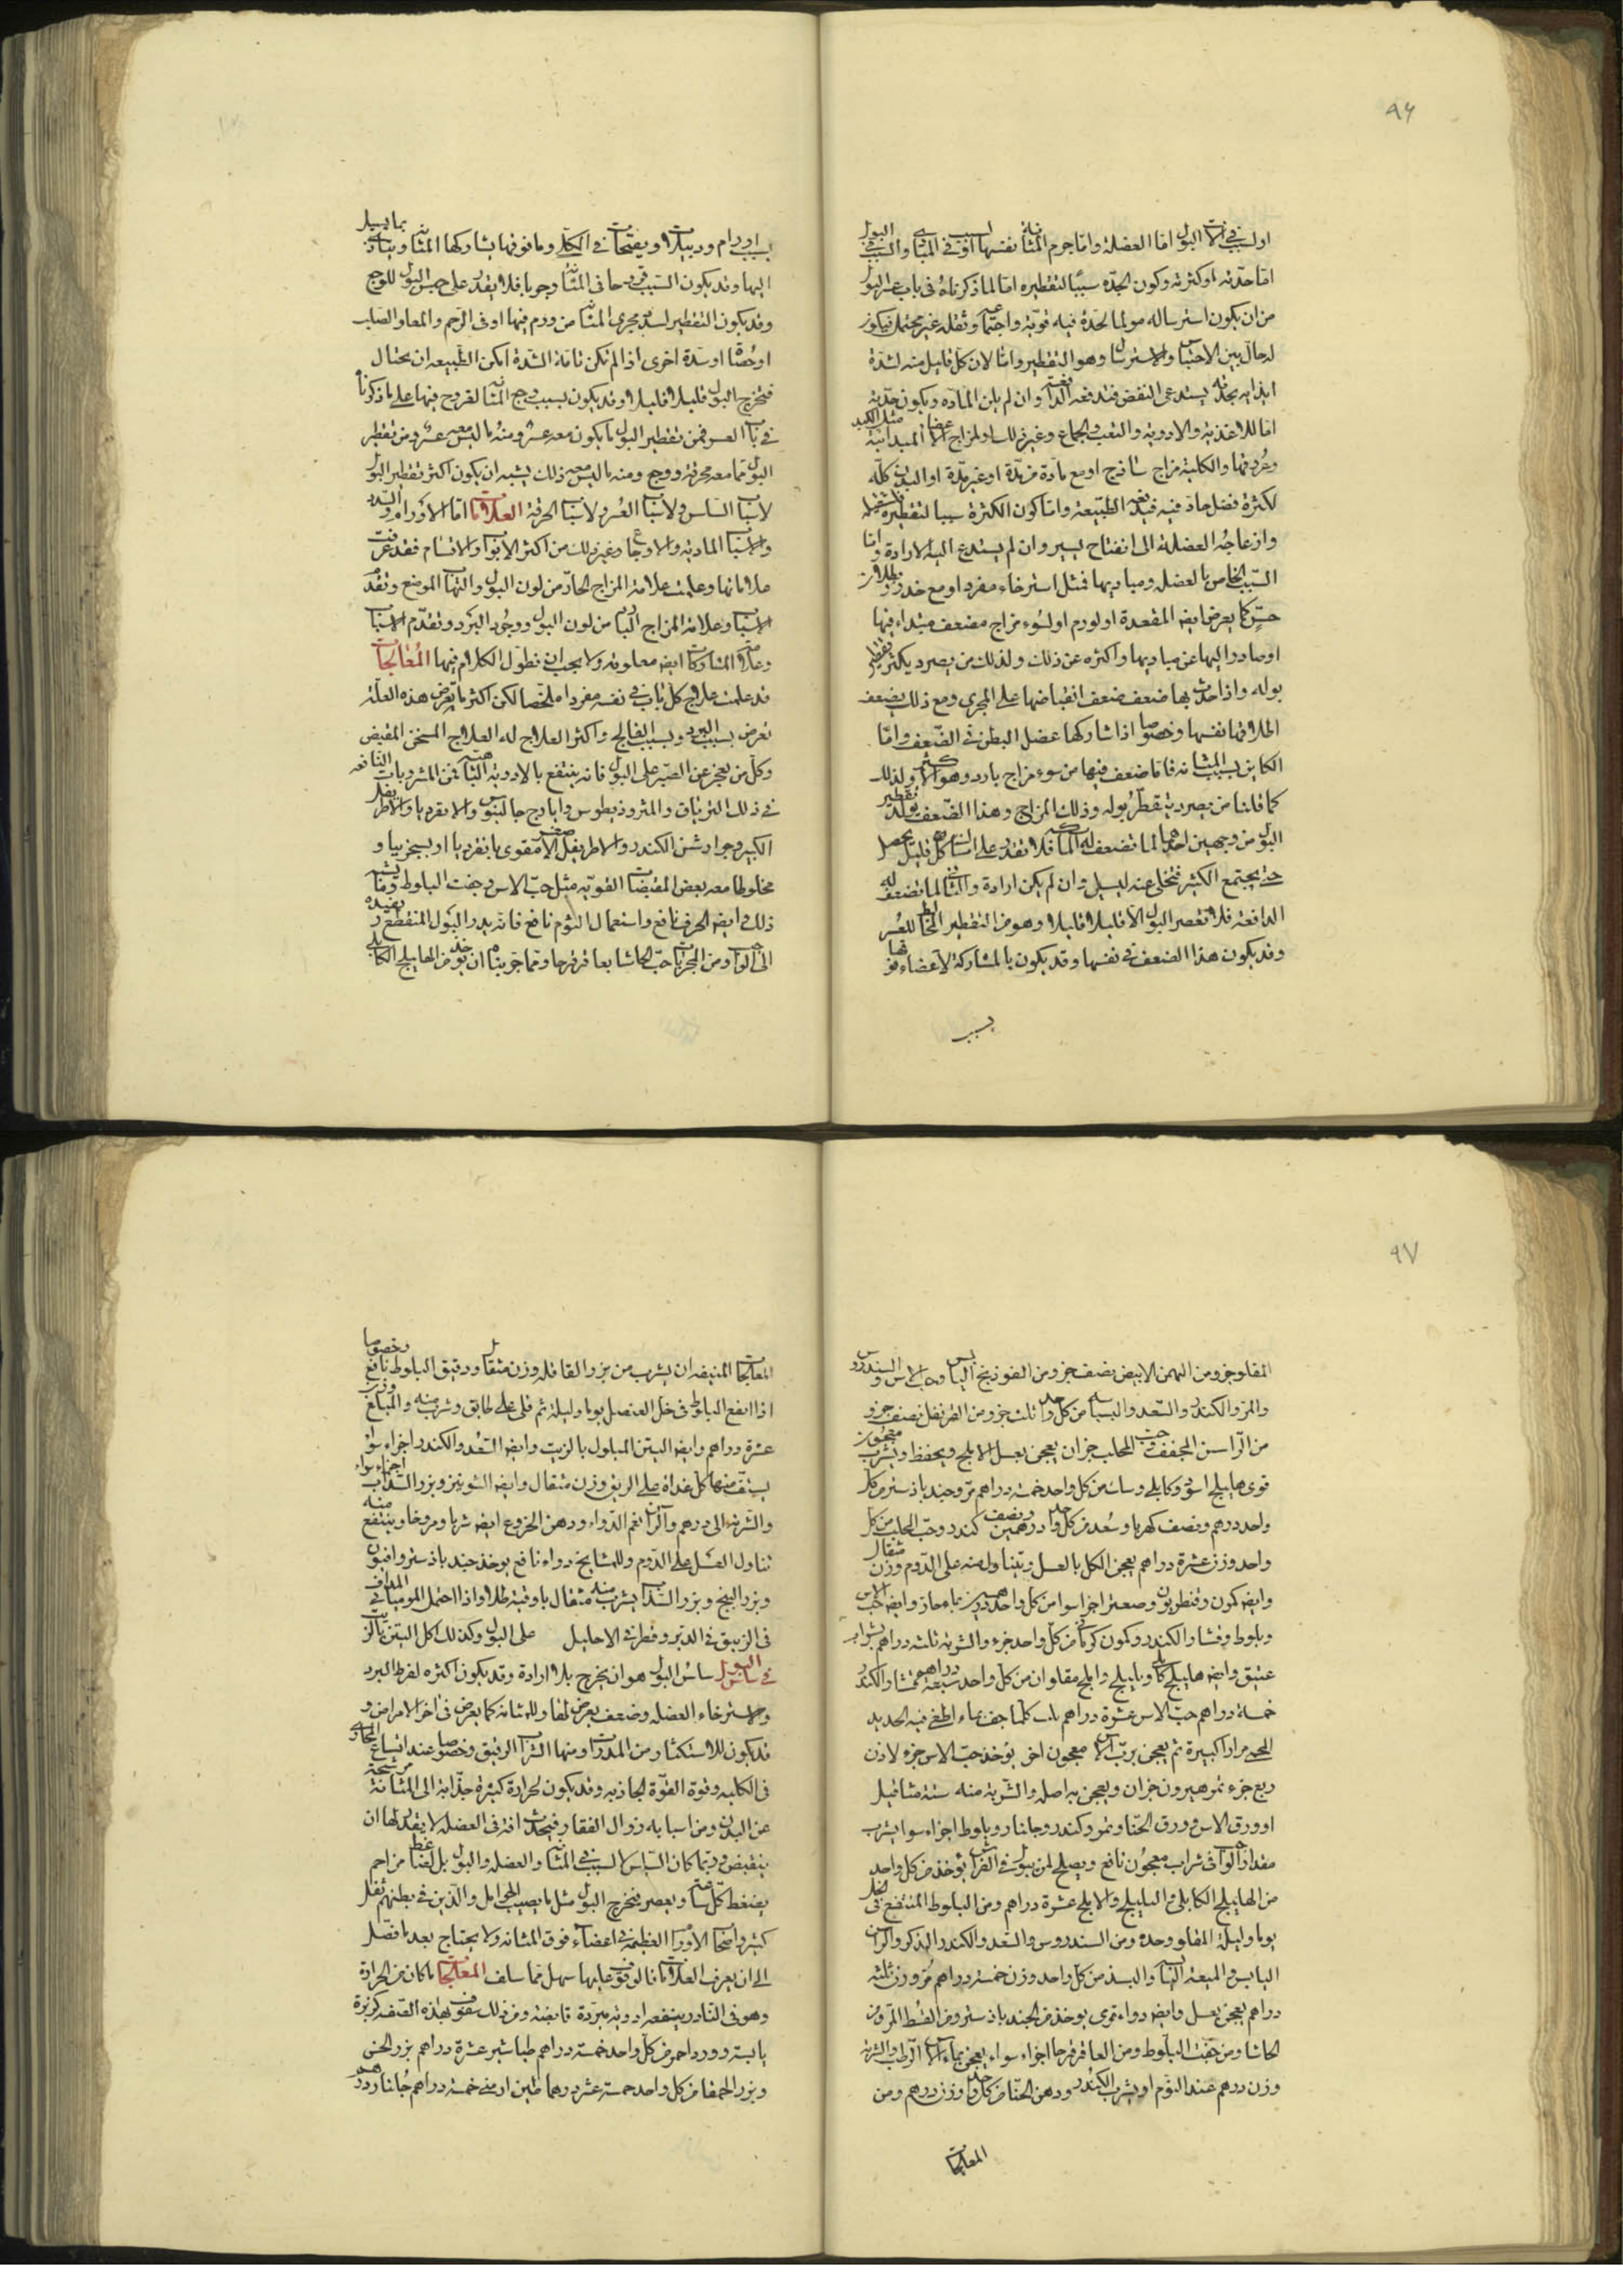 ٩٦
او لسبب في آلات البول اما العضلة واما جرم المثانة نفسها لسبب آفة في المثانة والسبب في البول
اما حدته او كثرته وكون الحدة سببا لتقطيره اما لما ذكرناه في باب عسر البول
من ان يكون استرساله مولما لحدة فيه قوية واجتماعه وثقله غير محتمل فيكون
له حال بين الاحتباس والاسترسال وهو التقطير واما لان كل قليل منه لشدة
ايذايه بحدته يستدعى النفض فتدفعه الدافعة وان لم يلن المادة ويكون حدته
اما للاغذية والادوية والتعب والجماع وغير ذلك او لمزاج الاعضا المبدانية مثل الكبد
وعروقها والكلية مزاج ساذج او مع مادة من مدة او غير مدة او البدن كله
لكثرة فضل حاد فيه فيدفعه الطبيعة واما كون الكثرة سببا لتقطيره فلثقله
وازعاجه العضلة الى انفتاح يسير وان لم يستدع اليه الارادة واما
السبب الخاص بالعضل ومباديها فمثل استرخاء مفرد او مع خدر وبطلان
حس كما يعرض ايضا المقعدة او لورم او لسوء مزاج مضعف مبتداء فيها
او صادر اليها عن مباديها واكثره عن ذلك ولذلك من يصرد يكثر تقطير
بوله واذا حدث بها ضعف ضعف انقباضها على المجرى ومع ذلك يضعف
اطلاقها نفسها وخصوصا اذا شاركها عضل البطن في الضعف واما
الكاين بسبب المثانة فاما ضعف فيها من سوء مزاج بارد وهو الاكثر ولذلك
كما قلنا من يصرد يتقطر بوله وذلك المزاج وهذا الضعف يولد تقطير
البول من وجهين احدهما لما تضعف له الماسكة فلا تقدر على امساك كل قليل يحصل
حتى يجتمع الكثير فتخلى عنه ليسيل وان لم يكن ارادة والثاني لما تضعف له
الدافعة فلا تعصر البول الا قليلا قليلا وهو من التقطير المخالط للعسر
وقد يكون هذا الضعف في نفسها وقد يكون بالمشاركة لاعضاء فوقها
بسبب
بسبب اورام ودبيلات او تقيحات في الكلى وما فوقها يشاركها المثانة ويتاذى بما يسيل
اليها وقد يكون السبب قروحا في المثانة وجربا فلا يقدر على حبس البول للوجع
وقد يكون التقطير لسدة مجرى المثانة من ورم فيها او في الرحم والمعا والصلب
او حصاة او سدة اخرى اذا لم تكن تامة الشدة امكن الطبيعة ان يحتال
فتخرج البول قليلا قليلا وقد يكون بسبب وجع المثانة لقروح فيها على ما ذكرنا
في باب العسر فمن تقطير البول ما يكون معه عسر ومنه ما ليس معه عسر ومن تقطير
البول ما معه حرقة ووجع ومنه ما ليس معه ذلك يشبه ان يكون اكثر تقطير البول
لاسباب السلس ولاسباب العسر ولاسباب الحرقة العلامات اما الاورام والسدد
والاسباب المادية والاوجاع وغير ذلك من اكثر الابواب والاقسام فقد عرفت
علاماتها وعلمت علامة المزاج الحاد من لون البول والتهاب الموضع وتقدم
الاسباب وعلامة المزاج البارد من لون البول ووجود البرد وتقدم الاسباب
وعلامة المشاركات ايضا معلومة ولا يجب ان نطول الكلام فيها المعالجات
قد علمت علاج كل باب في نفسه مفردا ملخصا لكن اكثر ما تعرض هذه العلة
تعرض بسبب البرد وبسبب الفالج واكثر العلاج له العلاج المسخن المقبض
وكل من يعجز عن الصبر على البول فانه ينتفع بالادوية الباهية من المشروبات النافعة
في ذلك الترياق والمثروذيطوس وايارج جالينوس والانقرديا والاطريفل
الكبير وجوارشن الكندر والاطريفل الاصغر مقوى بانقرديا او بسجزينا و
مخلوطا معه بعض المقبضات القوية مثل حب الاس وجفت البلوط وما يشبه
ذلك وايضا الحرف نافع واستعمال الثوم نافع فانه يدر البول المنقطع ويعيده
الى الواجب ومن المجربات حب الحاشا بعاقرقرحا ومما جربناه ان يوخذ من الهليلج الكابلى
٩٧
المقلو جزو من البهمن الابيض نصف جزو من الفوذنج اليابس وحب الاس والسندروس
والمر والكندر والسعد والبسباسة من كل واحد ثلث جزو من القرنفل نصف جزو
من الراسن المجفف وحب المحلب جزان يعجن بعسل الاملج ويحفظ ويشرب معجون
قوى هليلج اسود وكابلى وسك من كل واحد خمسة دراهم مر وجندباذستر من كل
واحد درهم ونصف كهربا وسعد من كل واحد درهمين ونصف كندر وحب المحلب من كل
واحد وزن عشرة دراهم يعجن الكل بالعسل ويتناول منه على الدوم وزن مثقال
وايضا كمون وقنطريون وصعتر اجزا سوا من كل واحد درهمين بماء حار وايضا حب الاس
وبلوط وقشار الكندر وكمون كرمانى من كل واحد جزء والشربة ثلثة دراهم بشراب
عتيق وايضا هليلج كابلى وبليلج واملج مقلوان من كل واحد سبعة دراهم قشار الكندر
خمسة دراهم حب الاس عشرة دراهم يلت كلما جف بماء اطفي فيه الحديد
المحمى مرارا كثيرة ثم يعجن برب الاس معجون اخر يوخذ حب الاس جزء لاذن
ربع جزء تمر هيرون جزان ويعجن به اصله والشربة منه ستة مثاقيل
او ورق الاس ورق الحنا ومر وكندر وجلنار وبلوط اجزاء سوا يشرب
مقدار الواجب في شراب معجون نافع ويصلح لمن يبول في الفراش يوخذ من كل واحد
من الهليلج الكابلى والبليلج والاملج عشرة دراهم ومن البلوط المنتقع في الخل
يوما وليلة المقلو وحده ومن السندروس والسعد والكندر الذكر والراسن
اليابس والميعة اليابسة والبسذ من كل واحد وزن خمسة دراهم مر وزن ثلثة
دراهم يعجن بعسل وايضا دواء قوى يوخذ من الجندباذستر ومن القسط المر ومن
الحاشا ومن جفت البلوط ومن العاقرقرحا اجزاء سواء يعجن بماء الاس الرطب والشربة
وزن درهم عند النوم او يشرب الكندر ودهن الحنا من كل واحد وزن درهم ومن
المعالجات
المعالجات المنيفة ان يشرب من بزر القاقلة وزن مثقال ودقيق البلوط نافع وخصوصا
اذا انقع البلوط في خل العنصل يوما وليلة ثم قلى على طابق وشرب منه والمبلغ وزن
عشرة دراهم وايضا التين المبلول بالزيت وايضا السعد والكندر اجزاء سواء
يستف منها كل غداة على الريق وزن مثقال وايضا الشونيز وبزر السذاب اجزاء سواء
والشربة الى درهم والراسن نعم الدواء ودهن الخروع ايضا شربا ومروخا وينتفع منه
تناول العسل على الدوم وللمشايخ دواء نافع يوخذ جندباذستر وافيون
وبزر البنج وبزر السذاب يشرب منه مثقال باوقية طلا واذا احتمل الموميائى المداف
في الزيبق في الدبر وقطر في الاحليل على البول وكذلك اكل التين بالزيت
في سلس البول سلس البول هو ان يخرج بلا ارادة وقد يكون اكثره لفرط البرد
ولاسترخاء العضلة وضعف يعرض لها وللمثانة كما يعرض في اخر الامراض و
قد يكون للاستكثار من المدرات ومنها الشراب الرقيق وخصوصا عند اتساع المجارى
في الكلية وقوة القوة الجاذبة وقد يكون لحرارة كثيرة جذابة الى المثانة مرشحة
عن البدن ومن اسبابه زوال الفقار فيحدث افة في العضلة لا يقدر لها ان
ينقبض وربما كان السلس لا لسبب في المثانة والعضلة والبول بل لضاغط مزاحم
يضغط كل ساعة ويعصر فيخرج البول مثل ما يصيب الحوامل والذين في بطنهم ثفل
كثير واصحاب الاورام العظيمة في اعضاء فوق المثانة ولا يحتاج بعد ما فصل
الى ان يعرف العلامات فالوقوف عليها سهل مما سلف المعالجات ما كان من الحرارة
وهو في النادر ينفعه ادوية مبردة قابضة ومن ذلك سفوف بهذه الصفة كزبرة
يابسة وورد احمر من كل واحد خمسة دراهم طباشير عشرة دراهم بزر الخس
وبزر الحمقا من كل واحد خمسة عشر درهما طين ارمنى خمسة دراهم جلنار درهم